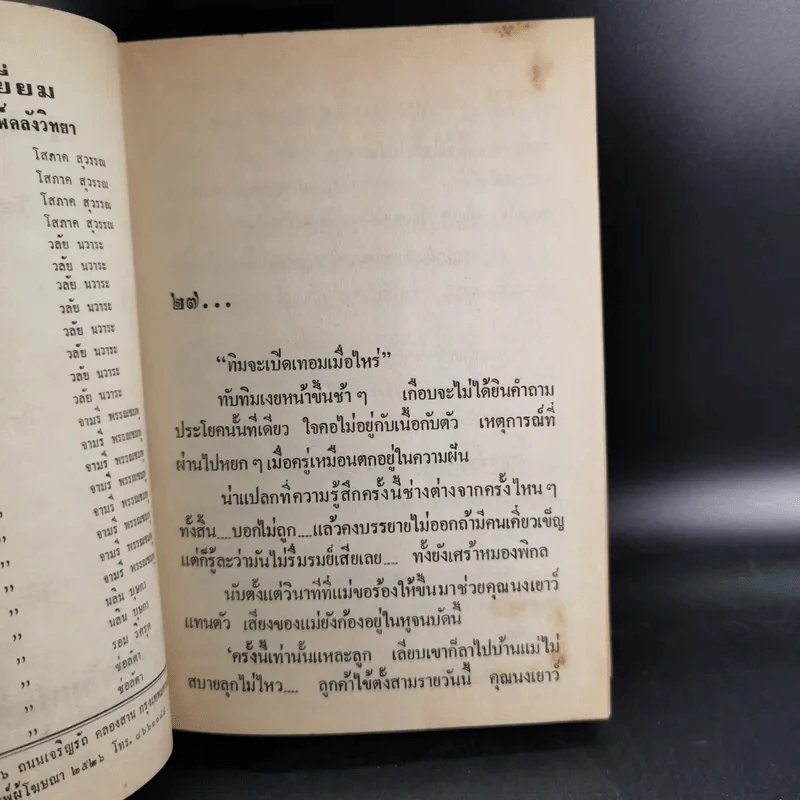 ยี่ยม
พ์คลังวิทยา
โสภาค สุวรรณ
โสภาค สุวรรณ
โสภาค สุวรรณ
โสภาค สุวรรณ
วลัย นวาระ
วลัย นวาระ
วลัย นวาระ
วลัย นวาระ
วลัย นวาระ
วลัย นวาระ
วลัย นวาระ
วลัย นวาระ
จามรี พรรณชมพู
จามรี พรรณชมพู
จามรี พรรณชมพู
จามรี พรรณชมพู
,, จามรี พรรณชมพู
,, จามรี พรรณชมพู
,, จามรี พรรณชมพู
,, นลิน บุษกร
,, นลิน บุษกร
,, รอม วิศรุต
,, ช่อลัดา
,, ช่อลัดา
๖ ถนนเจริญรัถ คลองสาน กรุงเทพ
พ์ผู้โฆษณา ๒๕๒๖ โทร.
๒๗...
“ทิมจะเปิดเทอมเมื่อไหร่”
ทับทิมเงยหน้าขึ้นช้า ๆ เกือบจะไม่ได้ยินคำถาม
ประโยคนั้นทีเดียว ใจคอไม่อยู่กับเนื้อกับตัว เหตุการณ์ที่
ผ่านไปหยก ๆ เมื่อครู่เหมือนตกอยู่ในความฝัน
น่าแปลกที่ความรู้สึกครั้งนี้ช่างต่างจากครั้งไหน ๆ
ทั้งสิ้น....บอกไม่ถูก....แล้วคงบรรยายไม่ออกถ้ามีคนเคี่ยวเข็ญ
แต่ก็รู้ละว่ามันไม่รื่มรมย์เสียเลย.... ทั้งยังเศร้าหมองพิกล
นับตั้งแต่วินาทีที่แม่ขอร้องให้ขึ้นมาช่วยคุณนงเยาว์
แทนตัว เสียงของแม่ยังก้องอยู่ในหูจนบัดนี้
‘ครั้งนี้เท่านั้นแหละลูก เลี่ยบเขาก็ลาไปบ้านแม่ไม่
สบายลุกไม่ไหว.... ลูกค้าไข้ตั้งสามรายวันนี้ คุณนงเยาว์